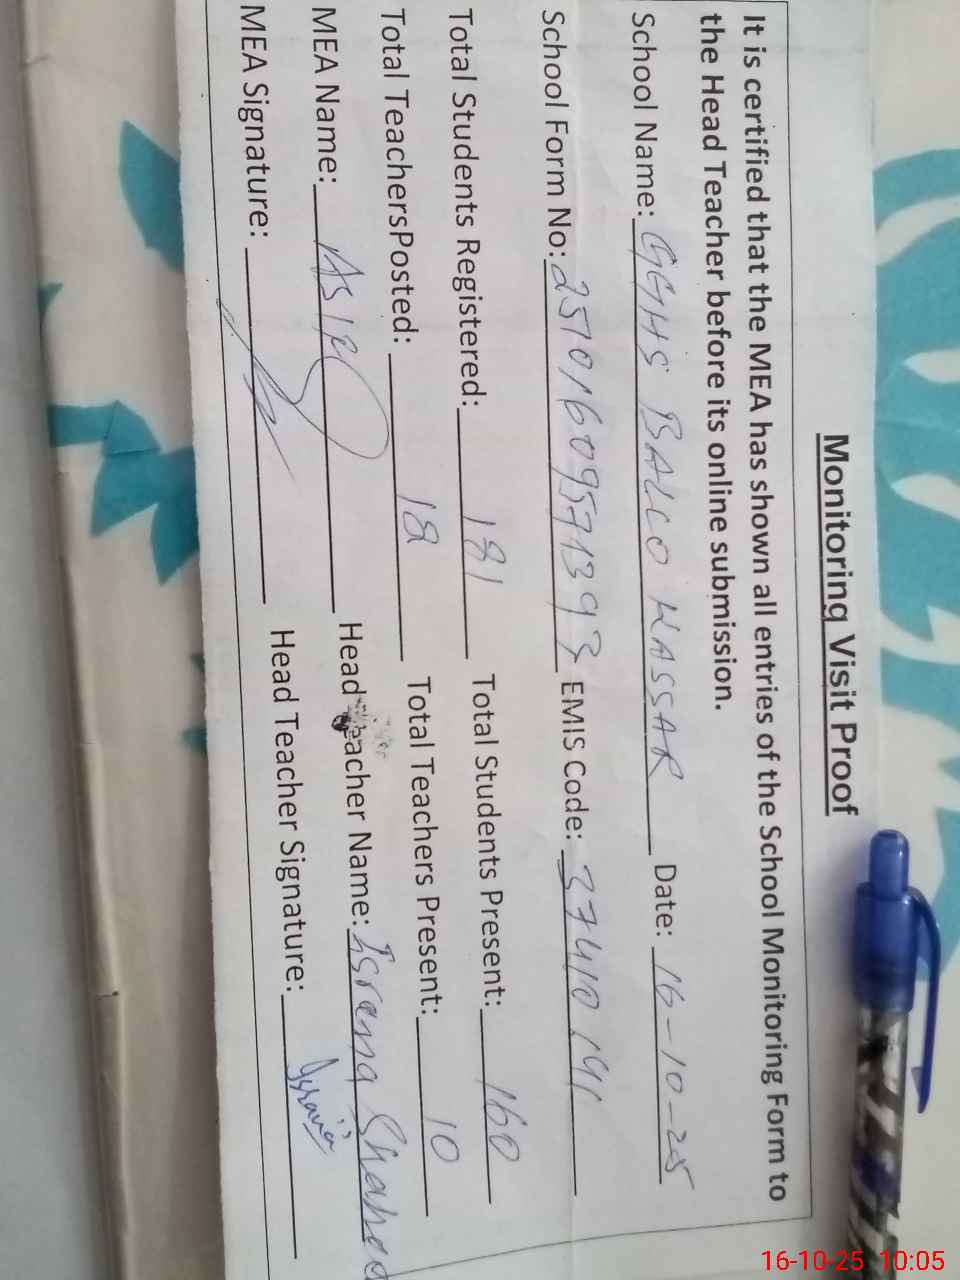 Monitoring Visit Proof
It is certified that the MEA has shown all entries of the School Monitoring Form to
the Head Teacher before its online submission.
School Name: GGHS BALCO KASSAR Date: 16-10-25
School Form No: 25101609571393 EMIS Code:
Total Students Registered: 181 Total Students Present: 160
Total TeachersPosted: 18 Total Teachers Present: 10
MEA Name: ASIF Head Teacher Name:
MEA Signature: Head Teacher Signature:
16-10-25 10:05